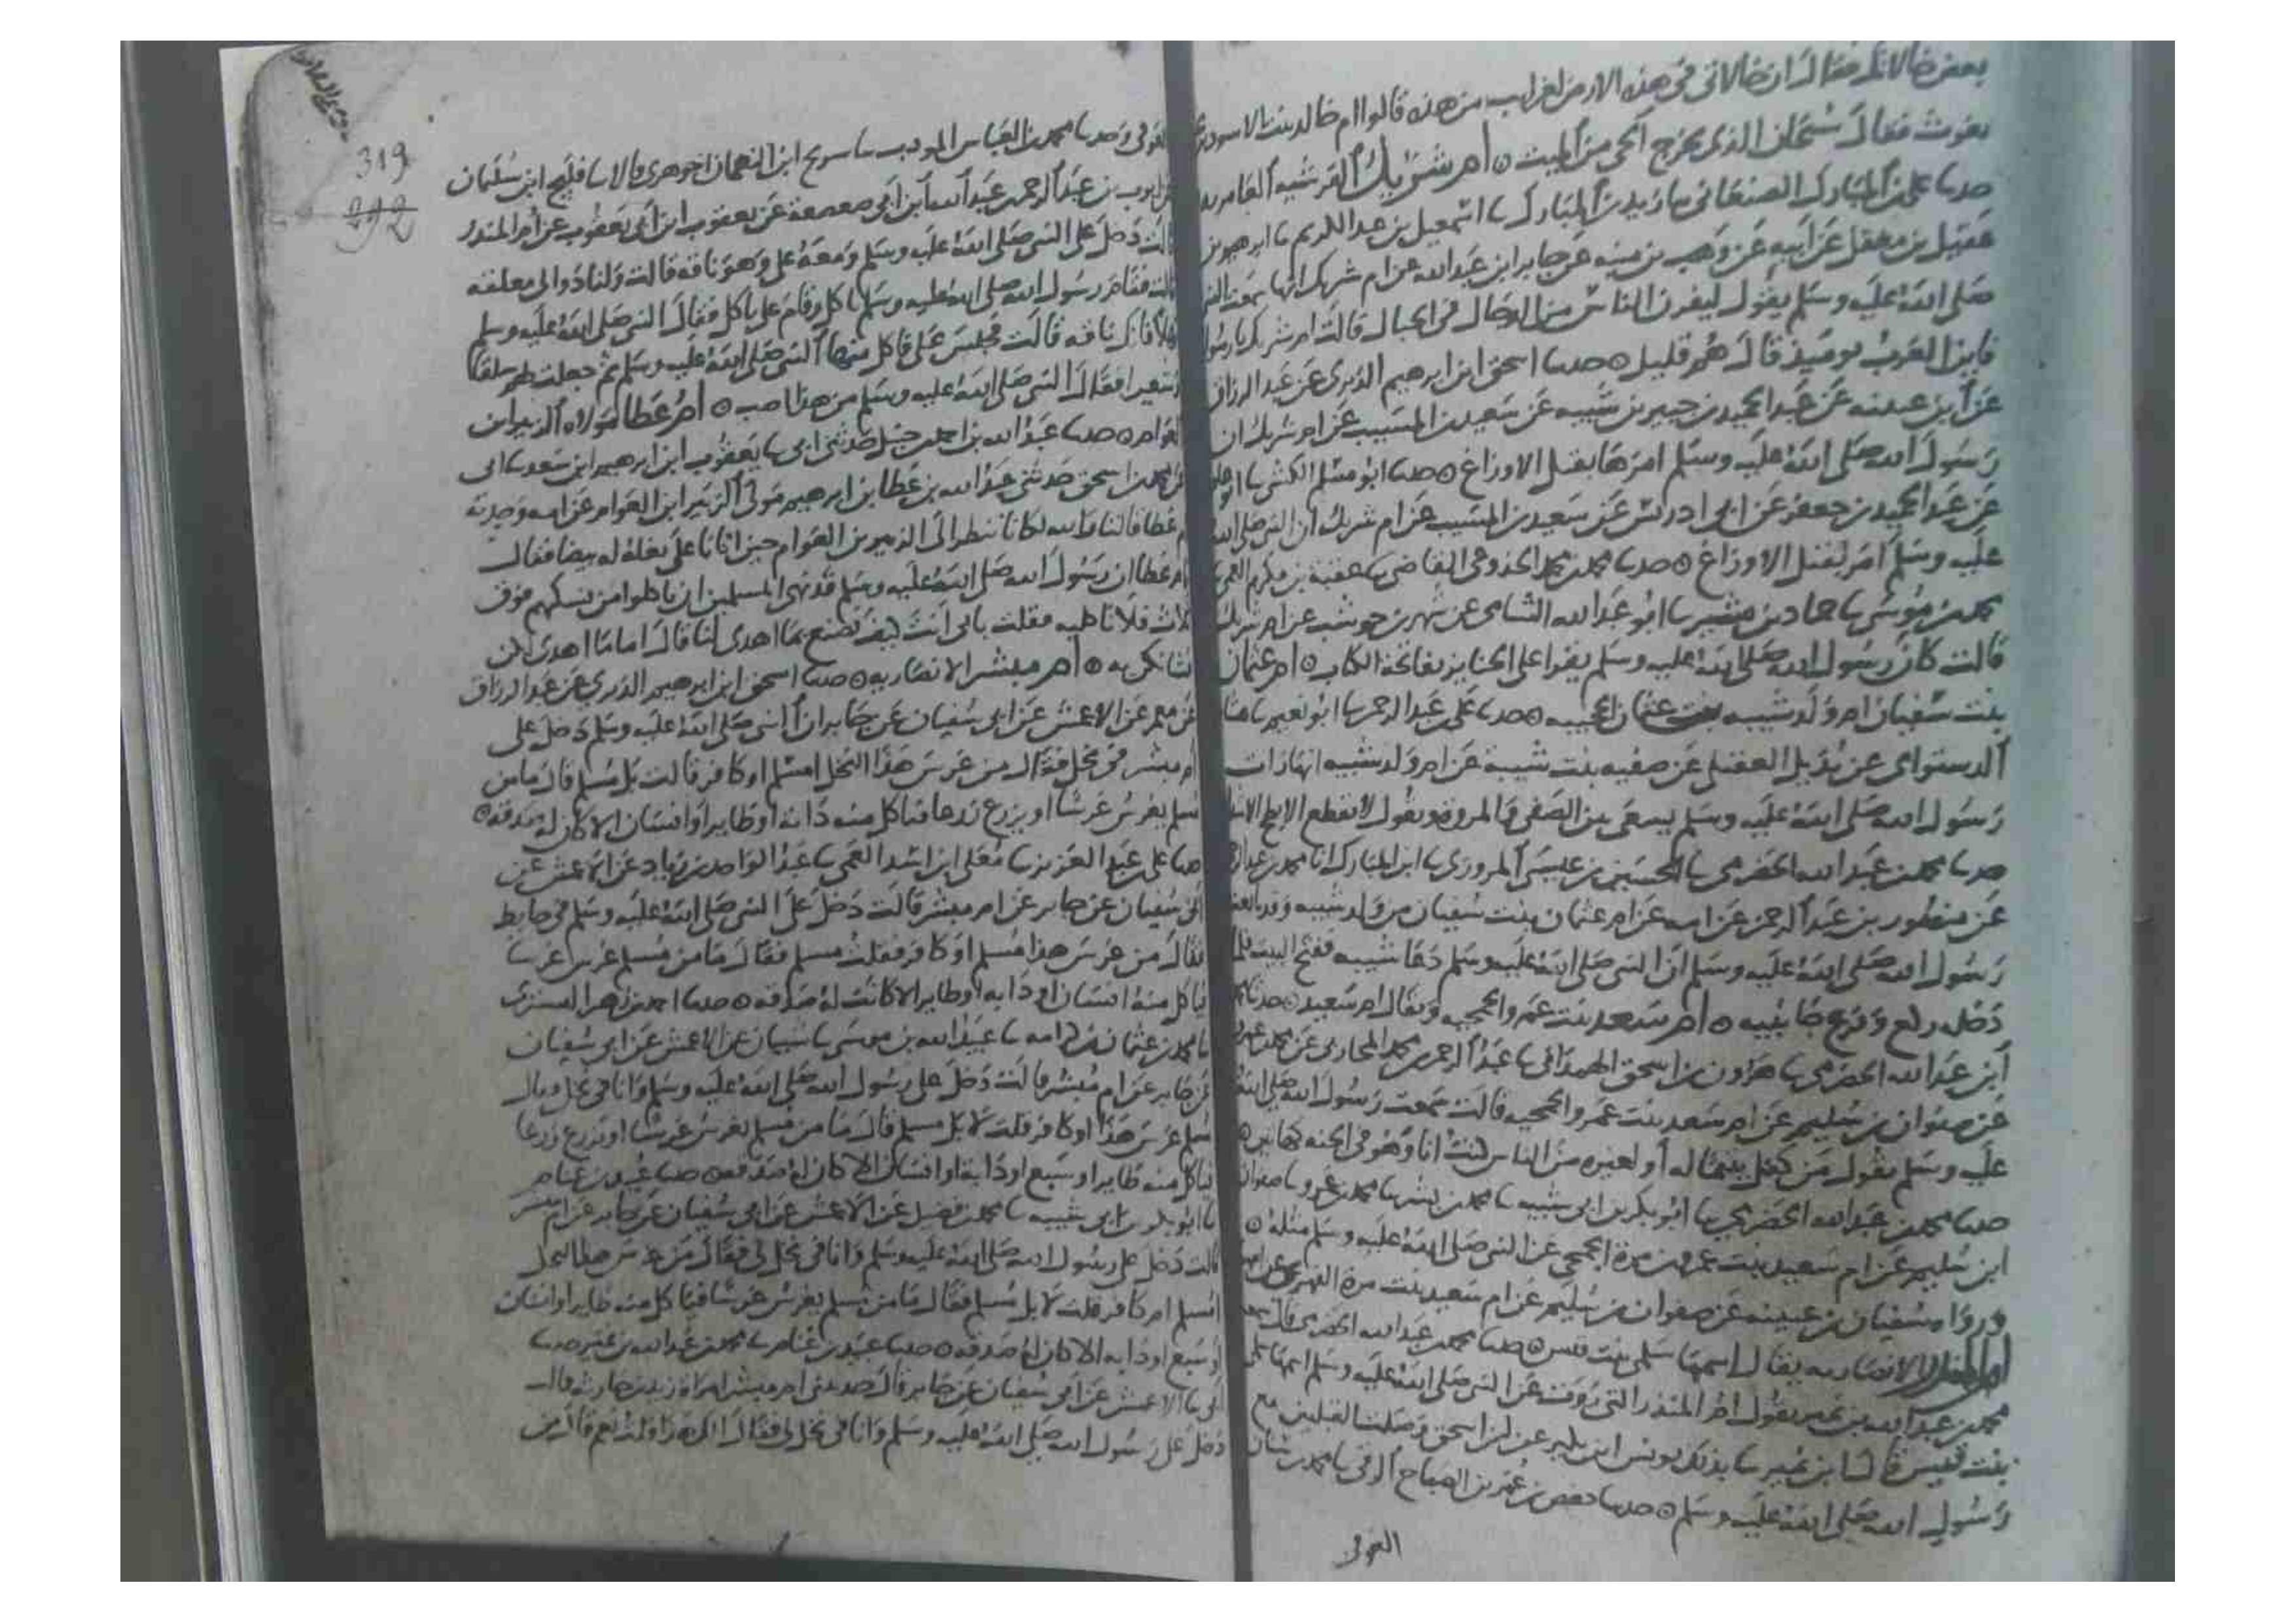 بعض خالاتك فقال ان خالاتي في هذه الارض لغرايب من هذه قالوا ام خالد بنت الاسود بن
يغوث فقال سبحان الذي يخرج الحي من الميت ه ام شريك القرشيه العامريه
حدثنا علي بن المبارك الصنعاني نا زيد بن المبارك نا اسمعيل بن عبد الكريم نا ابرهيم بن
عقيل بن معقل عن ابيه عن وهب بن منبه عن جابر ابن عبد الله عن ام شريك انها سمعت النبي
صلى الله عليه وسلم يقول ليفرن الناس من الدجال في الجبال قالت ام شريك يا رسول
فاين العرب يوميذ قال هم قليل ه حدثنا اسحق ابن ابرهيم الدبري عن عبد الرزاق
عن ابن عيينه عن عبد الحميد بن جبير بن شيبه عن سعيد بن المسيب عن ام شريك ان
رسول الله صلى الله عليه وسلم امرها بقتل الاوزاغ ه حدثنا ابو مسلم الكشي نا ابو
عن عبد الحميد بن جعفر عن ابي ادريس عن سعيد بن المسيب عن ام شريك ان النبي صلى الله
عليه وسلم امر بقتل الاوزاغ ه حدثنا محمد بن محمد الجذوعي القاضي نا عقبة بن مكرم العمي
محمد بن موسى نا حماد بن بشير نا ابو عبد الله الشامي عن شهر بن حوشب عن ام شريك
قالت كان رسول الله صلى الله عليه وسلم يقرا على الجنايز بفاتحة الكتاب ه ام عثمان
بنت سفيان ام ولد شيبه بن عثمان الحجبيه ه حدثنا علي بن عبد الرحمن نا ابو نعيم نا هشام
الدستواى عن بديل العقيلي عن صفيه بنت شيبة عن ام ولد شيبه انها رات
رسول الله صلى الله عليه وسلم يسعى بين الصفى والمروه ويقول لا يقطع الابطح الا شدا
حدثنا محمد بن عبد الله الحضرمي نا الحسين بن عيسى المروزي نا ابن المبارك انا محمد بن عبد الرحمن
عن منصور بن عبد الرحمن عن امه عن ام عثمان بنت سفيان من ولد شيبه وقد بايعت
رسول الله صلى الله عليه وسلم ان النبي صلى الله عليه وسلم دعا شيبه ففتح البيت فلما
دخله ركع وفرج جانبيه ه ام سعد بنت عمرو الجمحيه ويقال ام سعيد ه حدثنا محمد
ابن عبد الله الحضرمي نا هارون بن اسحق الهمداني نا عبد الرحمن بن محمد المحاربي عن محمد بن عمرو
عن صفوان بن سليم عن ام سعد بنت عمرو الجمحيه قالت سمعت رسول الله صلى الله
عليه وسلم يقول من كفل يتيما له او لغيره من الناس كنت انا وهو في الجنه كهاتين ه
حدثنا محمد بن عبد الله الحضرمي نا ابو بكر بن ابي شيبه نا محمد بن بشر نا محمد بن عمرو نا صفوان
ابن سليم عن ام سعيد بنت عمرو بن مرة الجمحي عن النبي صلى الله عليه وسلم مثله ه
ورواه سفيان بن عيينه عن صفوان بن سليم عن ام سعيد بنت مرة الفهري عن ابيها
ام المنذر الانصاريه يقال اسمها سلمى بنت قيس ه حدثنا محمد بن عبد الله الحضرمي قال سمعت
محمد بن عبد الله بن نمير يقول ام المنذر التي روت عن النبي صلى الله عليه وسلم اسمها سلمى
بنت قيس قال ابن نمير نا بذلك يونس ابن بكير عن ابن اسحق وصلت القبلتين مع
رسول الله صلى الله عليه وسلم ه حدثنا حفص بن عمر بن الصباح الرقي نا محمد بن سنان
العوقي
319
292
العوقي وحدثنا محمد بن العباس المودب نا سريج ابن النعمان الجوهري قالا نا فليح ابن سليمان
عن ايوب بن عبد الرحمن عبد الله ابن ابي صعصعة عن يعقوب ابن ابي يعقوب عن ام المنذر
قالت دخل علي النبي صلى الله عليه وسلم ومعه علي وهو ناقه قالت ولنا دوالى معلقه
قالت فقام رسول الله صلى الله عليه وسلم ياكل وقام علي ياكل فقال النبي صلى الله عليه وسلم
مهلا فانك ناقه قالت فجلس علي فاكل منها النبي صلى الله عليه وسلم ثم جعلت لهم سلقا
وشعيرا فقال النبي صلى الله عليه وسلم من هذا اصب ه ام عطا مولاه الزبير ابن
العوام ه حدثنا عبد الله بن احمد بن حنبل حدثني ابي نا يعقوب ابن ابرهيم ابن سعد نا ابي
عن محمد بن اسحق حدثني عبد الله بن عطا بن ابرهيم مولى الزبير ابن العوام عن امه وجدته
ام عطا قالتا والله لكاننا ننظر الى الزبير بن العوام حين اتانا على بغلة له بيضا فقال
يا ام عطا ان رسول الله صلى الله عليه وسلم قد نهى المسلمين ان ياكلوا من نسكهم فوق
ثلاث فلا تاكليه فقلت بابي انت كيف نصنع بما اهدى لنا قال اما ما اهدى لكن
فشانكن به ه ام مبشر الانصاريه ه حدثنا اسحق ابن ابرهيم الدبري عن عبد الرزاق
عن معمر عن الاعمش عن ابي سفيان عن جابر ان النبي صلى الله عليه وسلم دخل على
ام مبشر في نخل فقال من غرس هذا النخل امسلم او كافر قالت بل مسلم قال ما من
مسلم يغرس غرسا او يزرع زرعا فياكل منه دابة او طاير او انسان الا كان له صدقه ه
حدثنا علي بن عبد العزيز نا معلى ابن اسد العمي نا عبد الواحد بن زياد عن الاعمش عن
ابي سفيان عن جابر عن ام مبشر قالت دخل علي النبي صلى الله عليه وسلم في حايط
فقال من غرس هذا مسلم او كافر فقلت مسلم فقال ما من مسلم غرس غرسا
فياكل منه انسان او دابه او طاير الا كانت له صدقه ه حدثنا احمد بن زهير التستري
نا محمد بن عثمان بن كرامه نا عبيد الله بن موسى نا شيبان عن الاعمش عن ابي سفيان
عن جابر عن ام مبشر قالت دخل علي رسول الله صلى الله عليه وسلم وانا في نخل وقال
امسلم غرس هذا او كافر قلت لا بل مسلم قال ما من مسلم يغرس غرسا او يزرع زرعا
فياكل منه طاير او سبع او دابة او انسان الا كان له صدقه ه حدثنا عبيد بن غنام
نا ابو بكر بن ابي شيبه نا محمد بن فضيل عن الاعمش عن ابي سفيان عن جابر عن ام مبشر
قالت دخل علي رسول الله صلى الله عليه وسلم وانا في نخل لي فقال من غرس هذا النخل
امسلم ام كافر قلت لا بل مسلم فقال ما من مسلم يغرس غرسا فياكل منه طاير او انسان
او سبع او دابه الا كان له صدقه ه حدثنا عبيد بن غنام نا محمد بن عبد الله بن نمير حدثنا
ابي نا الاعمش عن ابي سفيان عن جابر قال حدثتني ام مبشر امراة زيد بن حارثه قالت
دخل علي رسول الله صلى الله عليه وسلم وانا في نخل لي فقال الك هذا قلت نعم قال من